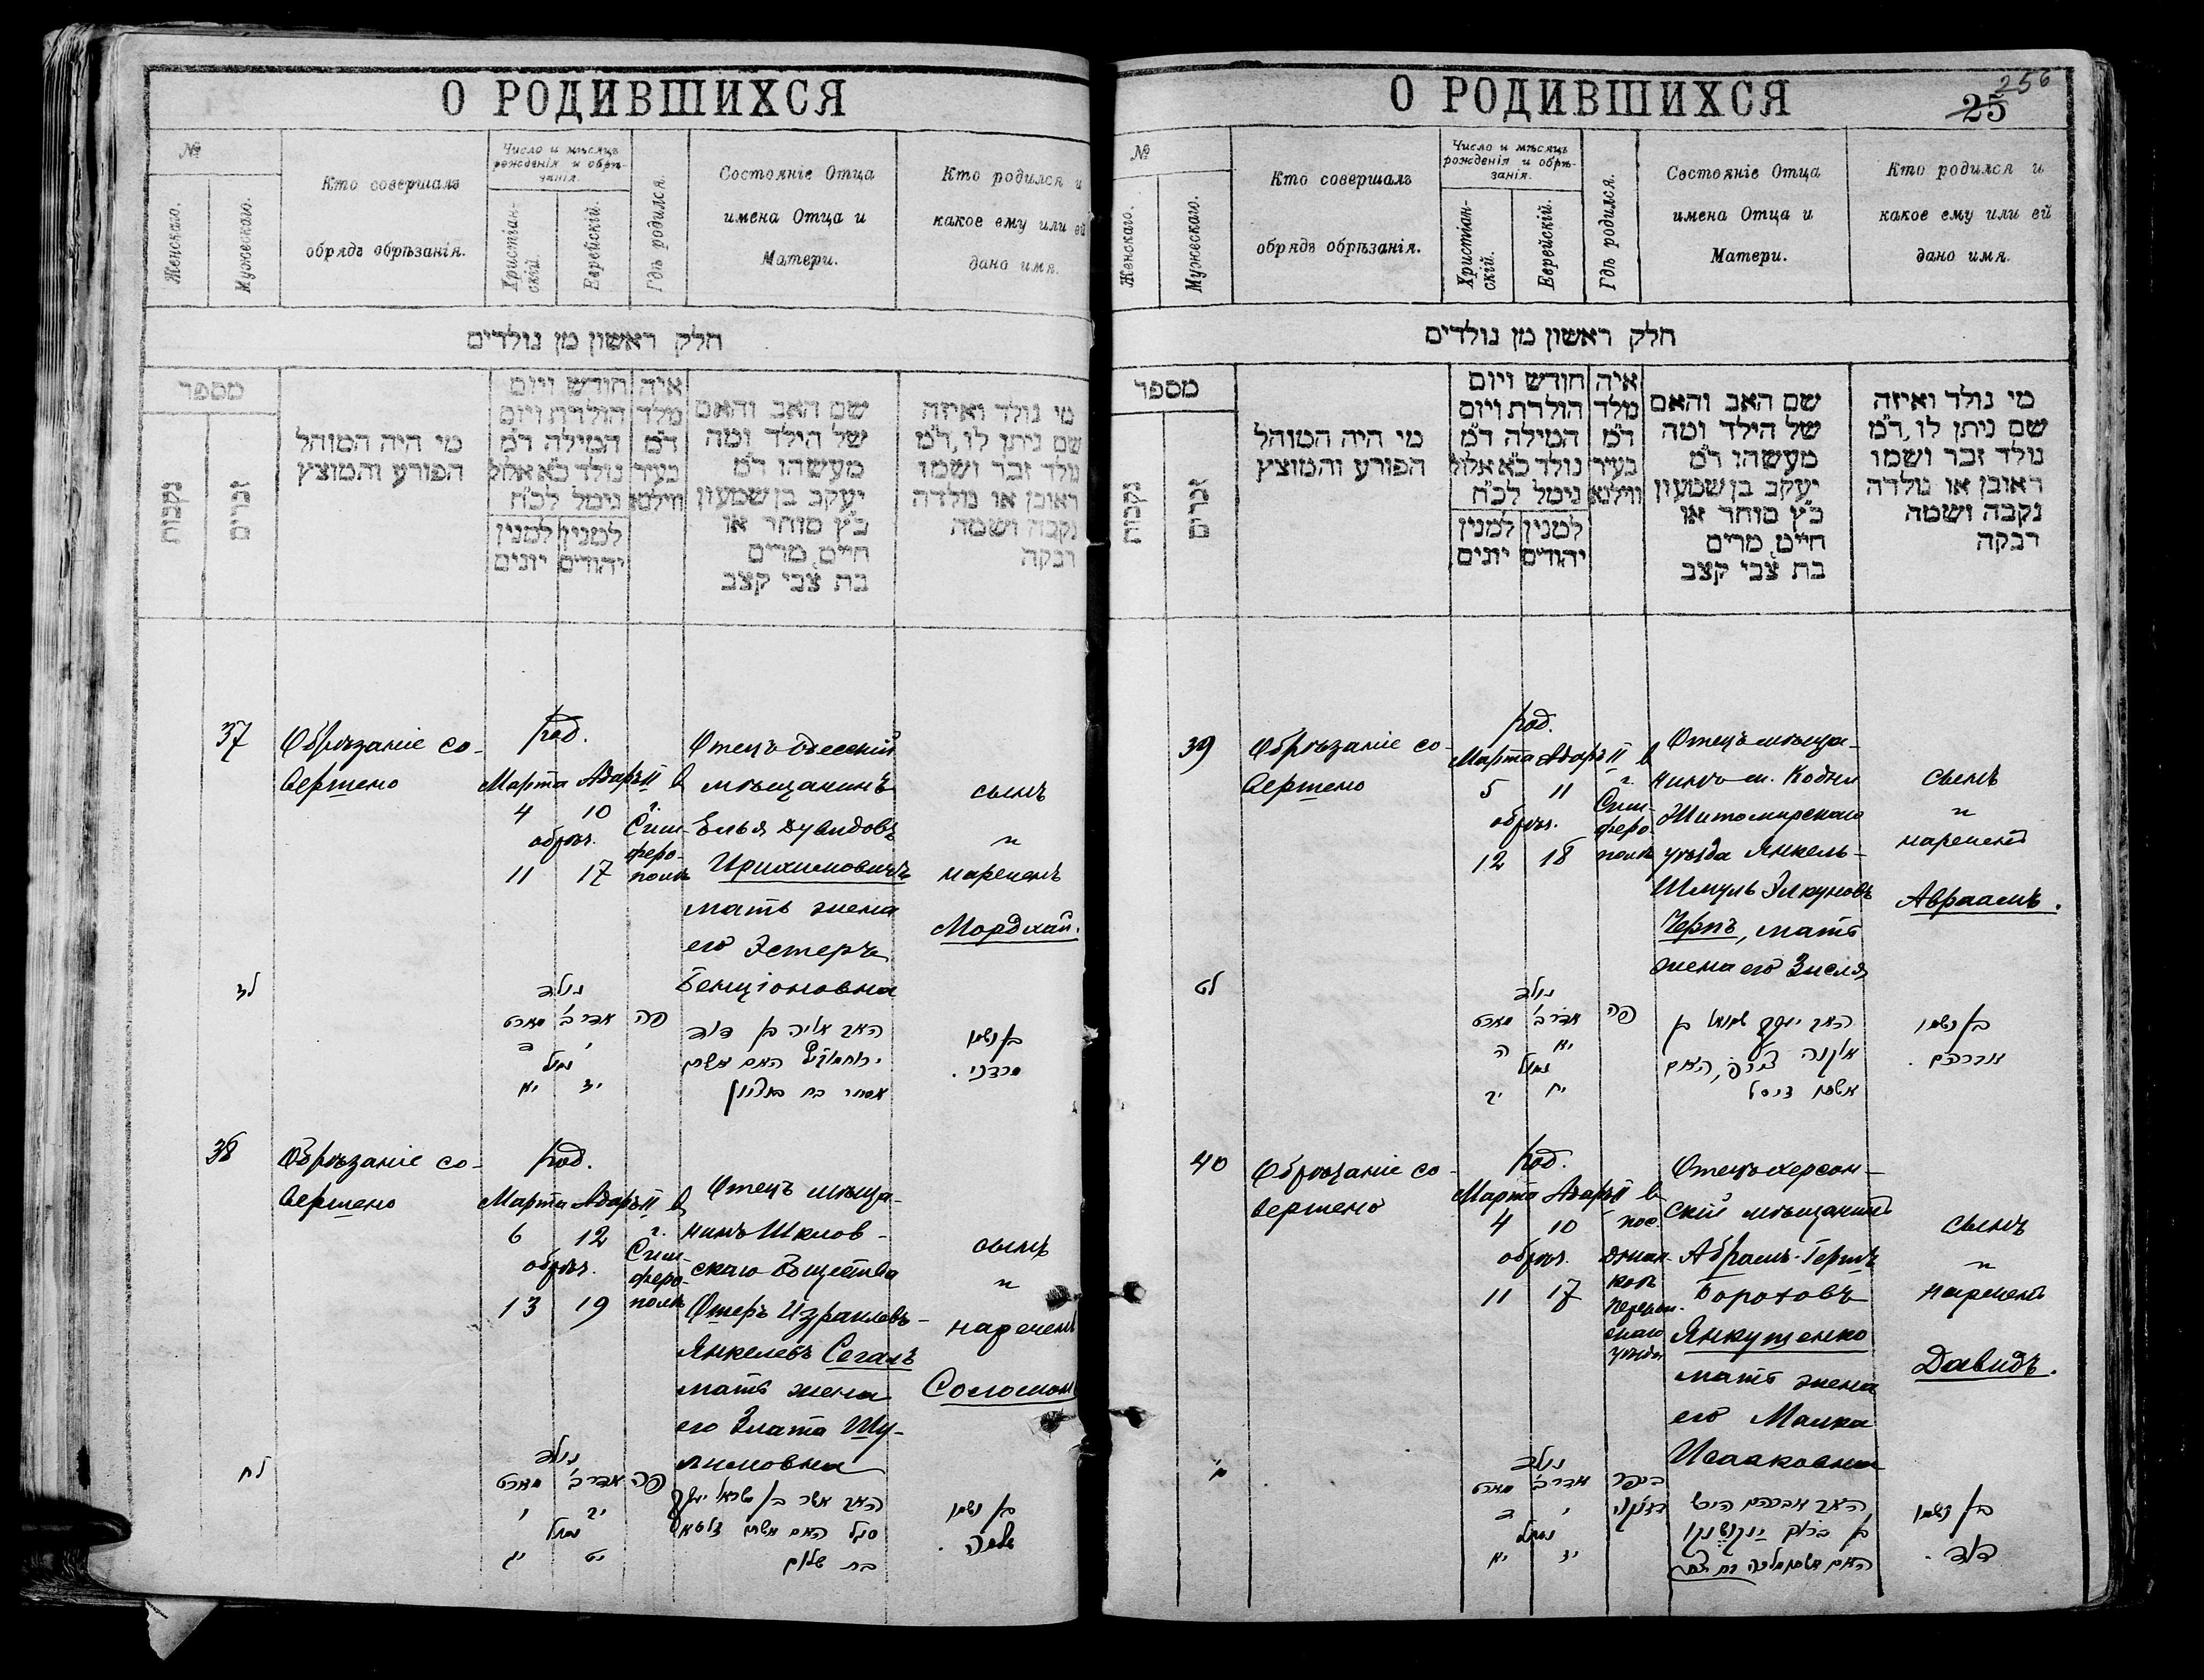 О РОДИВШИХСЯ
№
Женскаго.
Мужескаго.
Кто совершалъ
обрядъ обрѣзанія.
Число и мѣсяцъ
рожденія и обрѣ-
занія.
Христіан-
скій.
Еврейскій.
Гдѣ родился.
Состояніе Отца
имена Отца и
Матери.
Кто родился и
какое ему или ей
дано имя.
חלק ראשון מן נולדים
מספר
נקבות
זכרים
מי היה המוהל
הפורע והמוצץ
חודש ויום
הולדת ויום
המילה ד״מ
נולד כ״א אלול
נימל לכ״ח
למנין
יהודים
למנין
יונים
איה
מלד
ד״מ
בעיר
ווילנא
שם האב והאם
של הילד ומה
מעשהו ד״מ
יעקב בן שמעון
כ״ץ סוחר או
חייט, מרים
בת צבי קצב
מי נולד ואיזה
שם ניתן לו, ד״מ
נולד זכר ושמו
ראובן או נולדה
נקבה ושמה
רבקה
37
Обрѣзаніе со-
вершено
род.
Марта Адаръ II
4 10
обрѣз.
11 17
в
г.
Сим-
феро-
полѣ
Отецъ одесскій
мѣщанинъ
Элья Дувидовъ
Ирихимовичъ
мать жена
его Эстеръ
Бенціоновна
сынъ
и
нареченъ
Мордхай.
לז
נולד
אדר ב׳ מארט
י ד
נמול
יז יא
פה
האב אליה בן דוד
האם אשתו
אסתר בת בן ציון
בן ושמו
מרדכי.
38
Обрѣзаніе со-
вершено
род.
Марта Адаръ II
6 12
обрѣз.
13 19
в
г.
Сим-
феро-
полѣ
Отецъ мѣща-
нинъ Шклов-
скаго Общества
Ошеръ Израилевъ-
Янкелевъ Сегалъ
мать жена
его Злата Шу-
лимовна
сынъ
и
нареченъ
Соломон
לח
נולד
אדר ב׳ מארט
יב ו
נמול
יט יג
פה
האב אשר בן ישראל יעקב
סגל האם אשתו זלטא
בת שלום
בן ושמו
שלמה.
О РОДИВШИХСЯ
256
25
№
Женскаго.
Мужескаго.
Кто совершалъ
обрядъ обрѣзанія.
Число и мѣсяцъ
рожденія и обрѣ-
занія.
Христіан-
скій.
Еврейскій.
Гдѣ родился.
Состояніе Отца
имена Отца и
Матери.
Кто родился и
какое ему или ей
дано имя.
חלק ראשון מן נולדים
מספר
נקבות
זכרים
מי היה המוהל
הפורע והמוצץ
חודש ויום
הולדת ויום
המילה ד״מ
נולד כ״א אלול
נימל לכ״ח
למנין
יהודים
למנין
יונים
איה
מלד
ד״מ
בעיר
ווילנא
שם האב והאם
של הילד ומה
מעשהו ד״מ
יעקב בן שמעון
כ״ץ סוחר או
חייט, מרים
בת צבי קצב
מי נולד ואיזה
שם ניתן לו, ד״מ
נולד זכר ושמו
ראובן או נולדה
נקבה ושמה
רבקה
39
Обрѣзаніе со-
вершено
род.
Марта Адаръ II
5 11
обрѣз.
12 18
в
г.
Сим-
феро-
полѣ
Отецъ мѣща-
нинъ м. Кодни
Житомирскаго
уѣзда Янкель-
Шмуль Элкуновъ
Черпъ, мать
жена его Зисля
сынъ
и
нареченъ
Авраамъ.
לט
נולד
אדר ב׳ מארט
יא ה
נמול
יח יב
פה
האב יעקב שמואל בן
אלקנה האם
אשתו זיסל
בן ושמו
אברהם.
40
Обрѣзаніе со-
вершено
род.
Марта Адаръ II
4 10
обрѣз.
11 17
в
пос.
Джан-
коѣ
Перекоп-
скаго
уѣзда
Отецъ херсон-
скій мѣщанинъ
Абрамъ-Гершъ
Бороховъ
Янкушенко
мать жена
его Малка
Исааковна
сынъ
и
нареченъ
Давидъ.
מ׳
נולד
אדר ב׳ מארט
י ד
נמול
יז יא
בכפר
האב אברהם הירש
בן ברוך ינקושנקו
האם אשתו מלכה בת יצחק
בן ושמו
דוד.